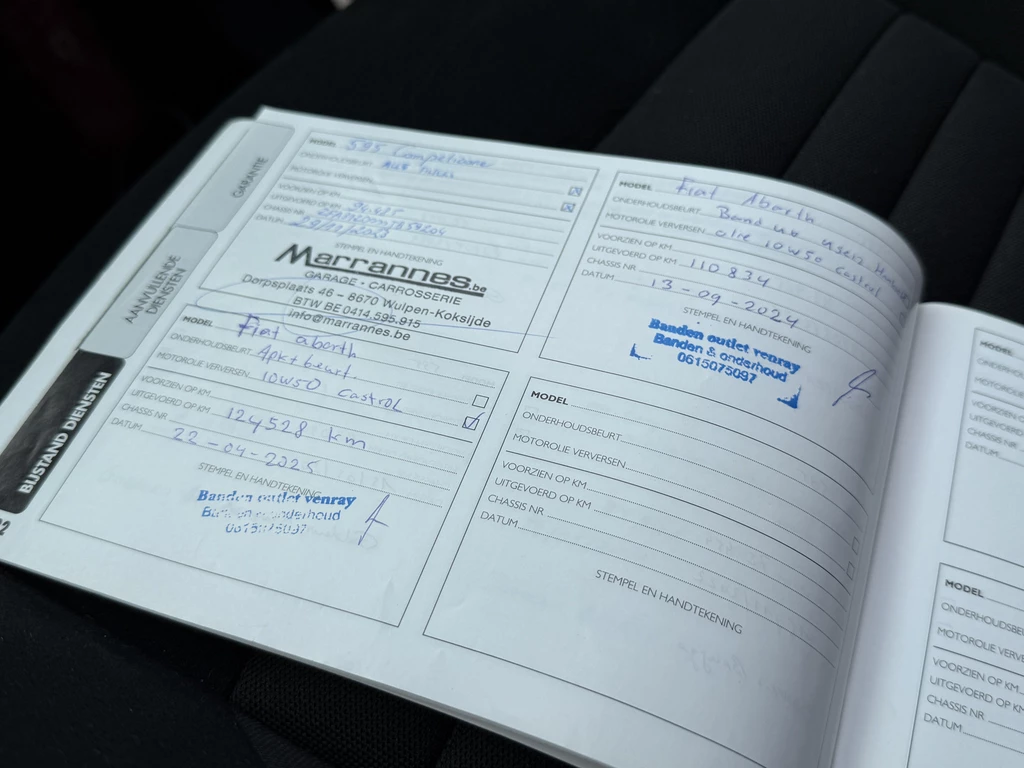 GARANTIE
AANVULLENDE
DIENSTEN
BIJSTAND DIENSTEN
MODEL 595 Competizione
ONDERHOUDSBEURT
MOTOROLIE VERVERSEN
VOORZIEN OP KM
UITGEVOERD OP KM
CHASSIS NR
DATUM
STEMPEL EN HANDTEKENING
Marrannes.be
GARAGE - CARROSSERIE
Dorpsplaats 46 - 8670 Wulpen-Koksijde
BTW BE 0414.595.915
info@marrannes.be
MODEL Fiat Aberth
ONDERHOUDSBEURT Band
MOTOROLIE VERVERSEN olie 10w50 castrol
VOORZIEN OP KM
UITGEVOERD OP KM 110834
CHASSIS NR
DATUM 13-09-2024
STEMPEL EN HANDTEKENING
Banden outlet venray
Banden & onderhoud
0615075097
MODEL Fiat aberth
ONDERHOUDSBEURT Apk + beurt.
MOTOROLIE VERVERSEN 10w50 castrol
VOORZIEN OP KM
UITGEVOERD OP KM 124528 km
CHASSIS NR
DATUM 22-04-2025
STEMPEL EN HANDTEKENING
Banden outlet venray
Banden & onderhoud
0615075097
MODEL
ONDERHOUDSBEURT
MOTOROLIE VERVERSEN
VOORZIEN OP KM
UITGEVOERD OP KM
CHASSIS NR
DATUM
STEMPEL EN HANDTEKENING
MODEL
ONDERHOUDS
MOTOROLIE
VOORZIEN O
UITGEVOERD
CHASSIS NR
DATUM
MODEL
ONDERHOUDSBEU
MOTOROLIE VERVE
VOORZIEN OP KM
UITGEVOERD OP KM
CHASSIS NR
DATUM